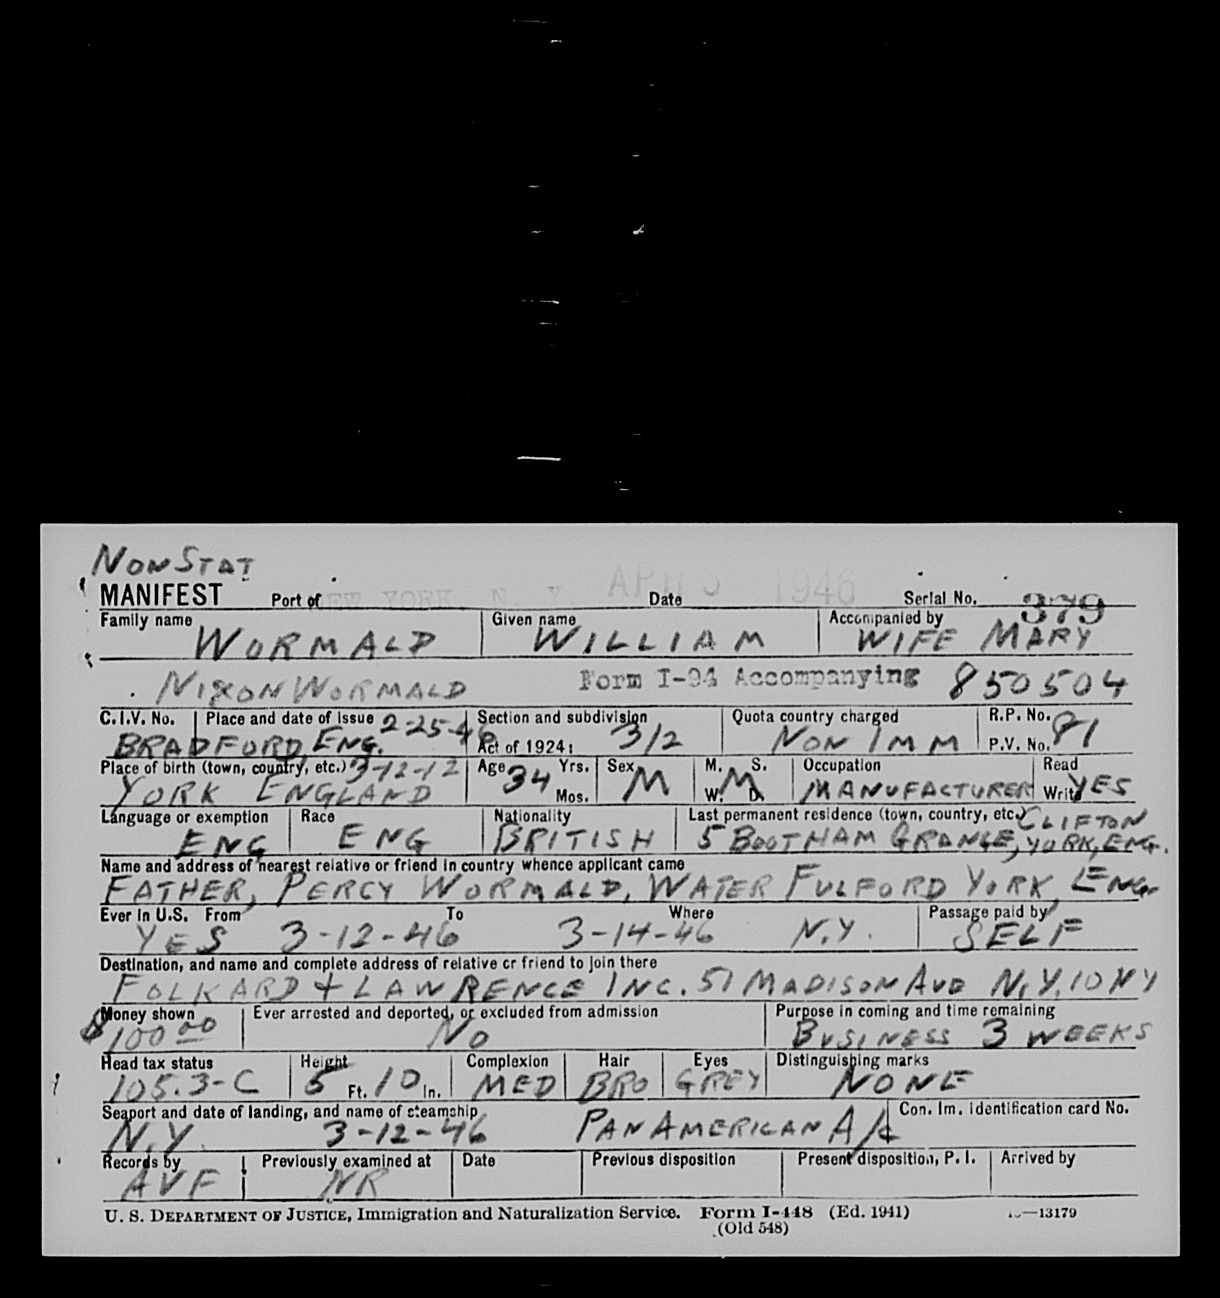 NON STAT
MANIFEST Port of NEW YORK, N. Y. Date APR 5 1946 Serial No. 379
Family name WORMALD Given name WILLIAM Accompanied by WIFE MARY
NIXON WORMALD Form I-94 Accompanying 850504
C. I. V. No. Place and date of issue 2-25-46 Section and subdivision Quota country charged R. P. No.
BRADFORD ENG. Act of 1924: 3/2 NON IMM P. V. No. 81
Place of birth (town, country, etc.) 3-12-12 Age 34 Yrs. Sex M. S. Occupation Read
YORK ENGLAND Mos. M W. M D. MANUFACTURER Write YES
Language or exemption Race Nationality Last permanent residence (town, country, etc.) CLIFTON
ENG ENG BRITISH 5 BOOTHAM GRANGE, YORK, ENG.
Name and address of nearest relative or friend in country whence applicant came
FATHER, PERCY WORMALD, WATER FULFORD YORK, ENG.
Ever in U.S. From To Where Passage paid by
YES 3-12-46 3-14-46 N.Y. SELF
Destination, and name and complete address of relative or friend to join there
FOLKARD + LAWRENCE INC. 51 MADISON AVE N.Y. 10 NY
Money shown Ever arrested and deported, or excluded from admission Purpose in coming and time remaining
$100.00 NO BUSINESS 3 WEEKS
Head tax status Height Complexion Hair Eyes Distinguishing marks
105.3-C 5 Ft. 10 In. MED BRO GREY NONE
Seaport and date of landing, and name of steamship Con. Im. identification card No.
N.Y. 3-12-46 PAN AMERICAN A/C
Records by Previously examined at Date Previous disposition Present disposition, P. I. Arrived by
AVF NR
U. S. DEPARTMENT OF JUSTICE, Immigration and Naturalization Service. Form I-448 (Ed. 1941) —13179
(Old 548)